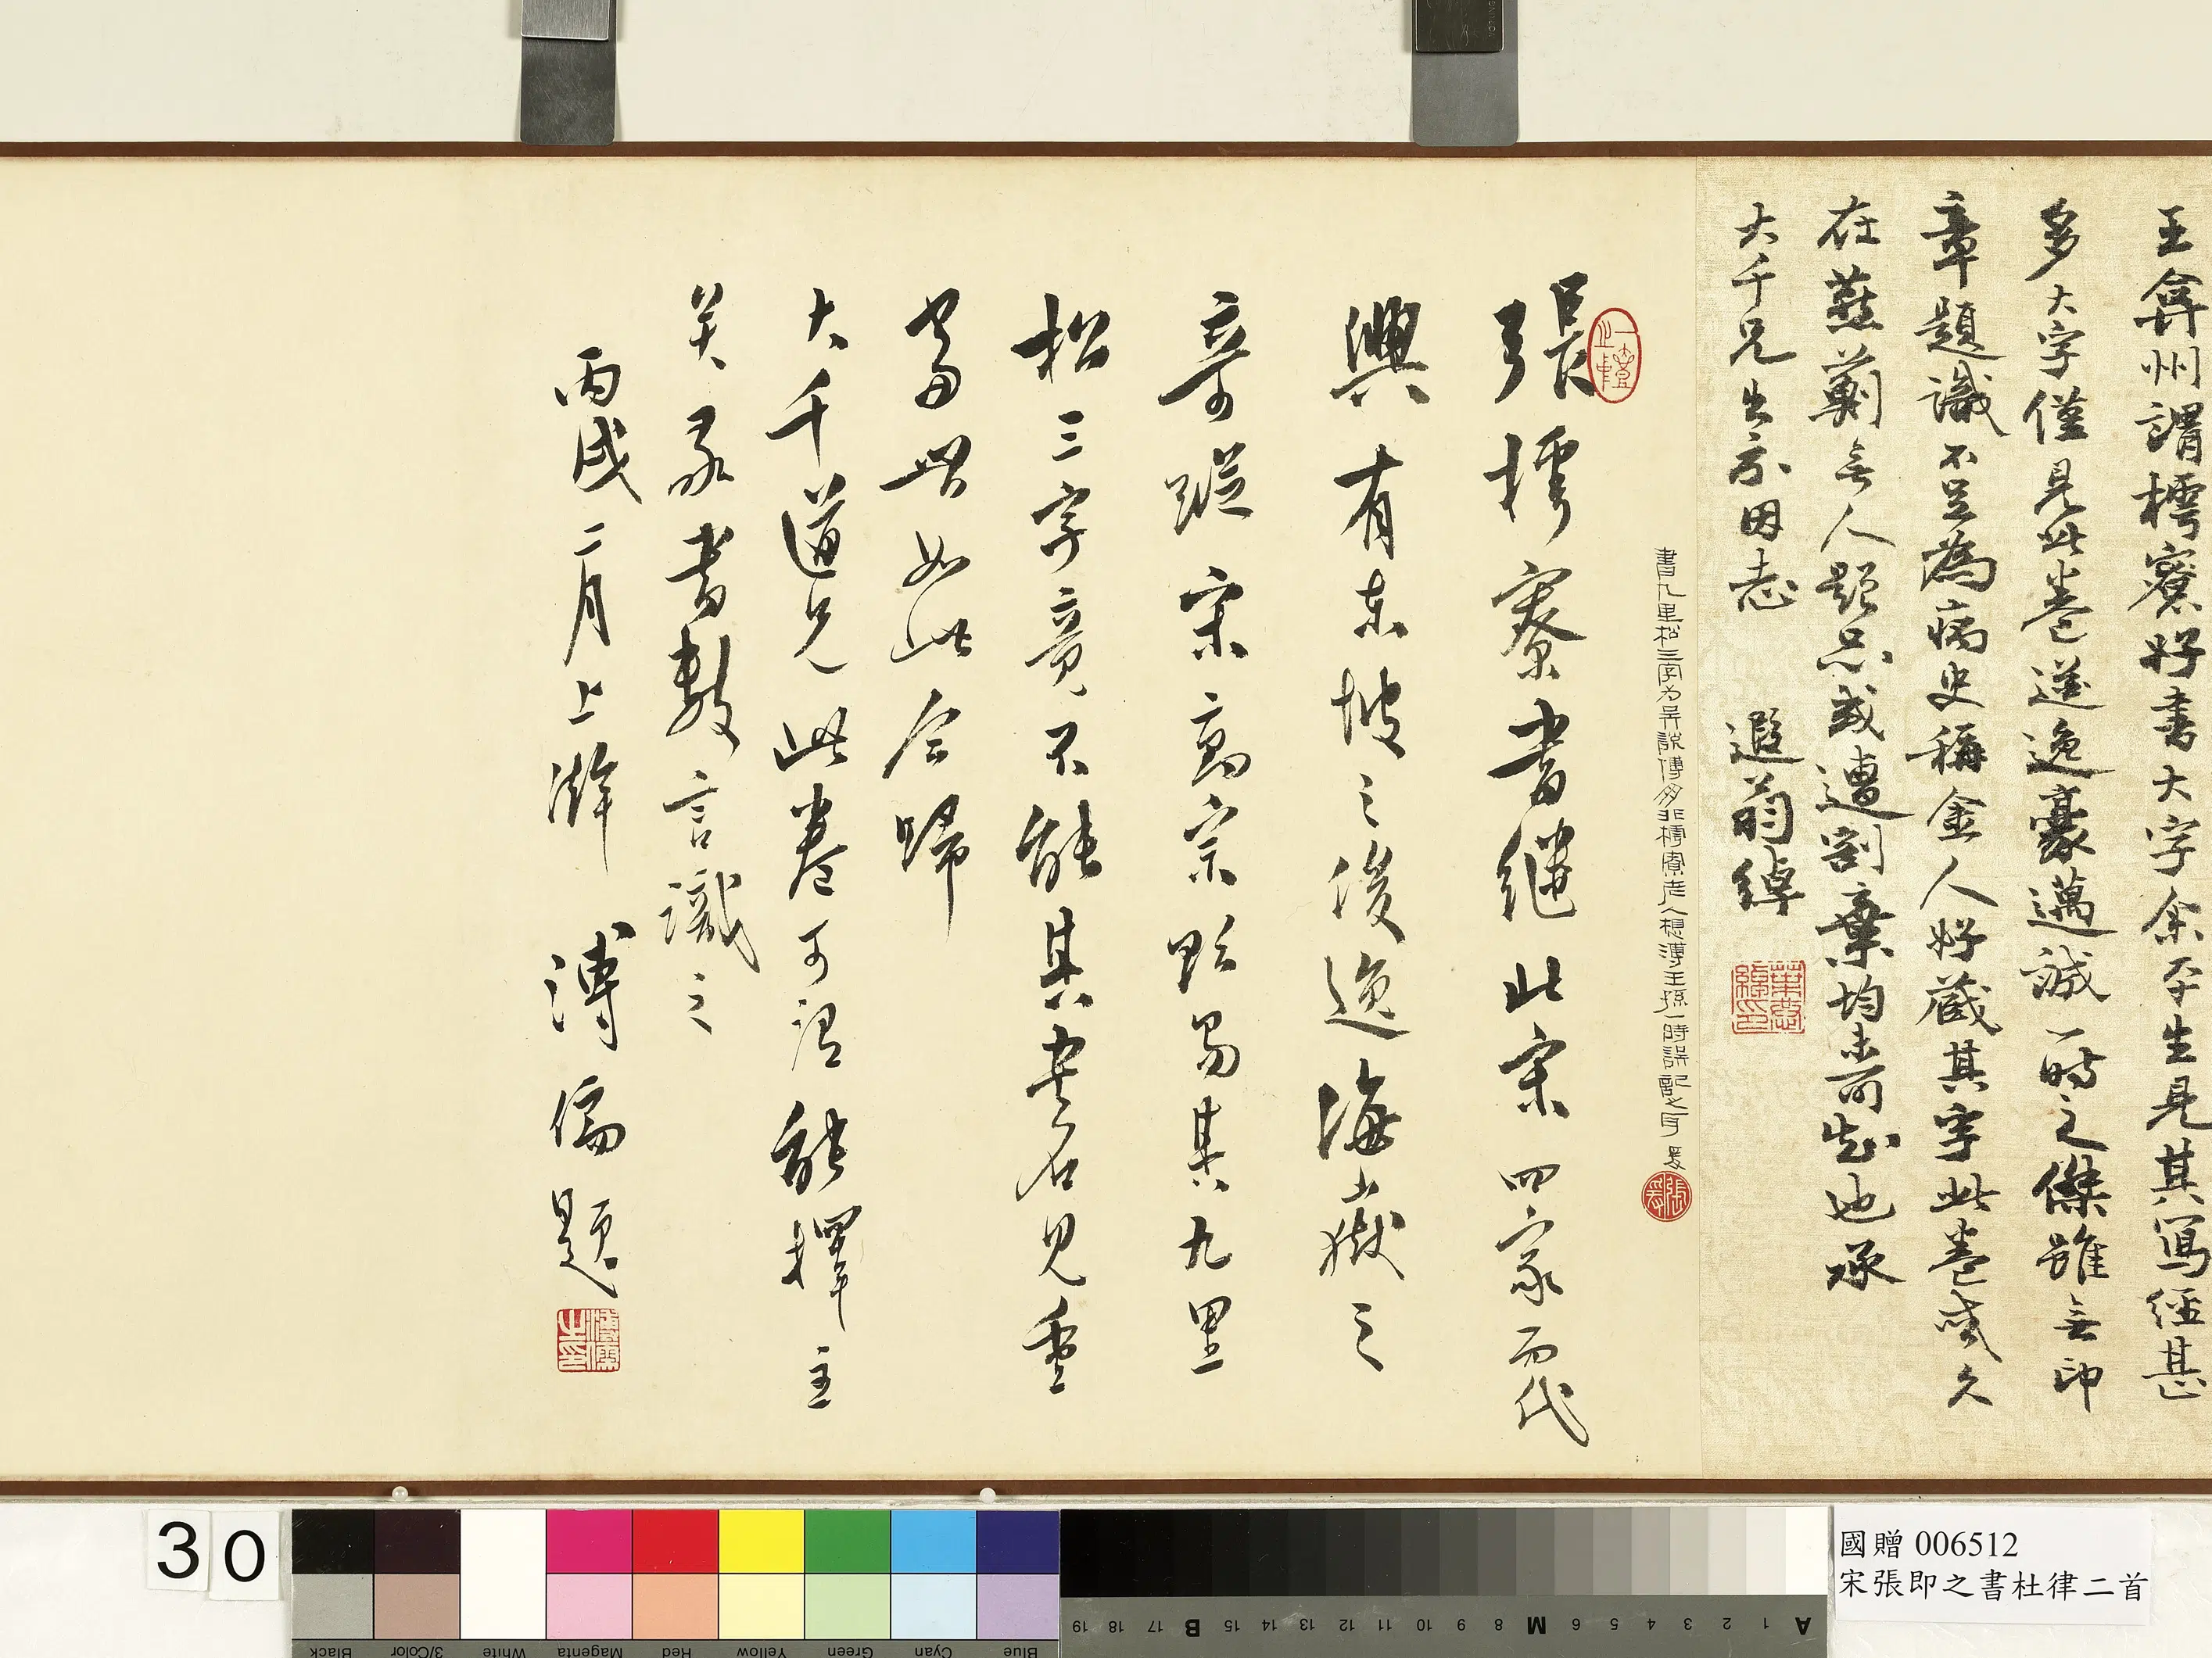 王弇州謂樗寮好書大字余平生見其寫經甚
多大字僅見此卷遒逸豪邁誠一時之傑雖無印
章題識不足為病史稱金人好藏其字此卷或久
在燕薊無人題品或遭割棄均未可知也承
大千兄出示因志　遐翁綽
葉恭綽印
書九里松三字為吳說傅朋非樗寮老人想溥王孫一時誤記之耳 爰
張爰
張樗寮書繼北宋四家而代
興有東坡之後逸海嶽之
奇蹤宋高宗欲易其九里
松三字竟不能其書名見重
當世如此今歸
大千道兄此卷可謂能擇主
矣承書數言識之
丙戌二月上澣　溥儒題
溥儒之印
30
國贈 006512
宋張即之書杜律二首
Black 3/Color White Magenta Red Yellow Green Cyan Blue
19 18 17 B 15 14 13 12 11 10 9 8 M 6 5 4 3 2 1 A